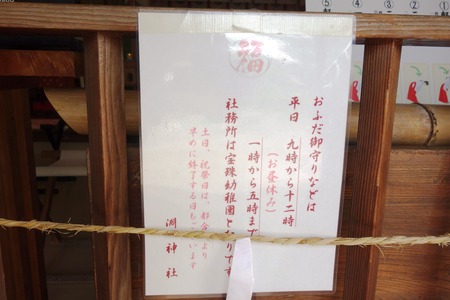 おふだ御守りなどは
平日 九時から十二時
(お昼休み)
一時から五時まで
社務所は宝珠幼稚園となりです
土日、祝祭日は、都合により
早めに終了する日もございます
淵神社
⑤
④
③
②
①